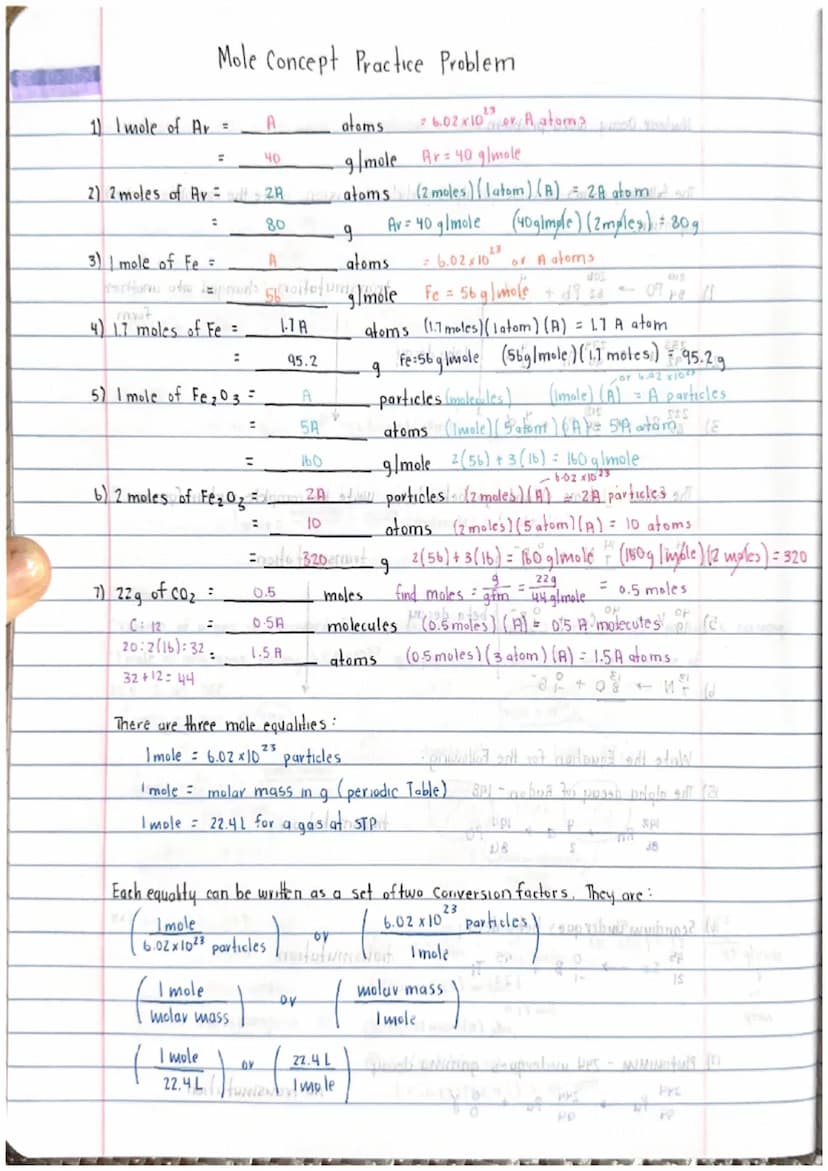 Mole Concept Practice Problem
1) 1 mole of Ar = A atoms = 6.02 x 10²³ or A atoms
= 40 g/mole Ar = 40 g/mole
2) 2 moles of Ar = 2A atoms (2 moles)(1 atom)(A) = 2A atom
= 80 g Ar = 40 g/mole (40g/mole)(2 moles) = 80g
3) 1 mole of Fe = A atoms = 6.02 x 10²³ or A atoms
= 56 g/mole Fe = 56 g/mole
4) 1.7 moles of Fe = 1.7A atoms (1.7 moles)(1 atom)(A) = 1.7 A atom
= 95.2 g Fe = 56 g/mole (56g/mole)(1.7 moles) = 95.2g
or 6.02 x 10²³
5) 1 mole of Fe₂O₃ = A particles (molecules) (1mole)(A) = A particles
= 5A atoms (1mole)(5 atom)(A) = 5A atom
= 160 g/mole 2(56) + 3(16) = 160 g/mole
6.02 x 10²³
6) 2 moles of Fe₂O₃ = 2A particles (2 moles)(A) = 2A particles
= 10 atoms (2 moles)(5 atom)(A) = 10 atoms
= 320 g 2(56) + 3(16) = 160 g/mole (160g/mole)(2 moles) = 320
7) 22g of CO₂ = 0.5 moles find moles = g/gfm = 22g/44g/mole = 0.5 moles
C: 12 = 0.5A molecules (0.5 moles)(A) = 0.5 A molecules
2O: 2(16): 32 = 1.5 A atoms (0.5 moles)(3 atom)(A) = 1.5A atoms
32 + 12 = 44
There are three mole equalities:
1 mole = 6.02 x 10²³ particles
1 mole = molar mass in g (periodic Table)
1 mole = 22.4L for a gas at STP
Each equality can be written as a set of two conversion factors. They are:
(1 mole / 6.02 x 10²³ particles) or (6.02 x 10²³ particles / 1 mole)
(1 mole / molar mass) or (molar mass / 1 mole)
(1 mole / 22.4 L) or (22.4 L / 1 mole)